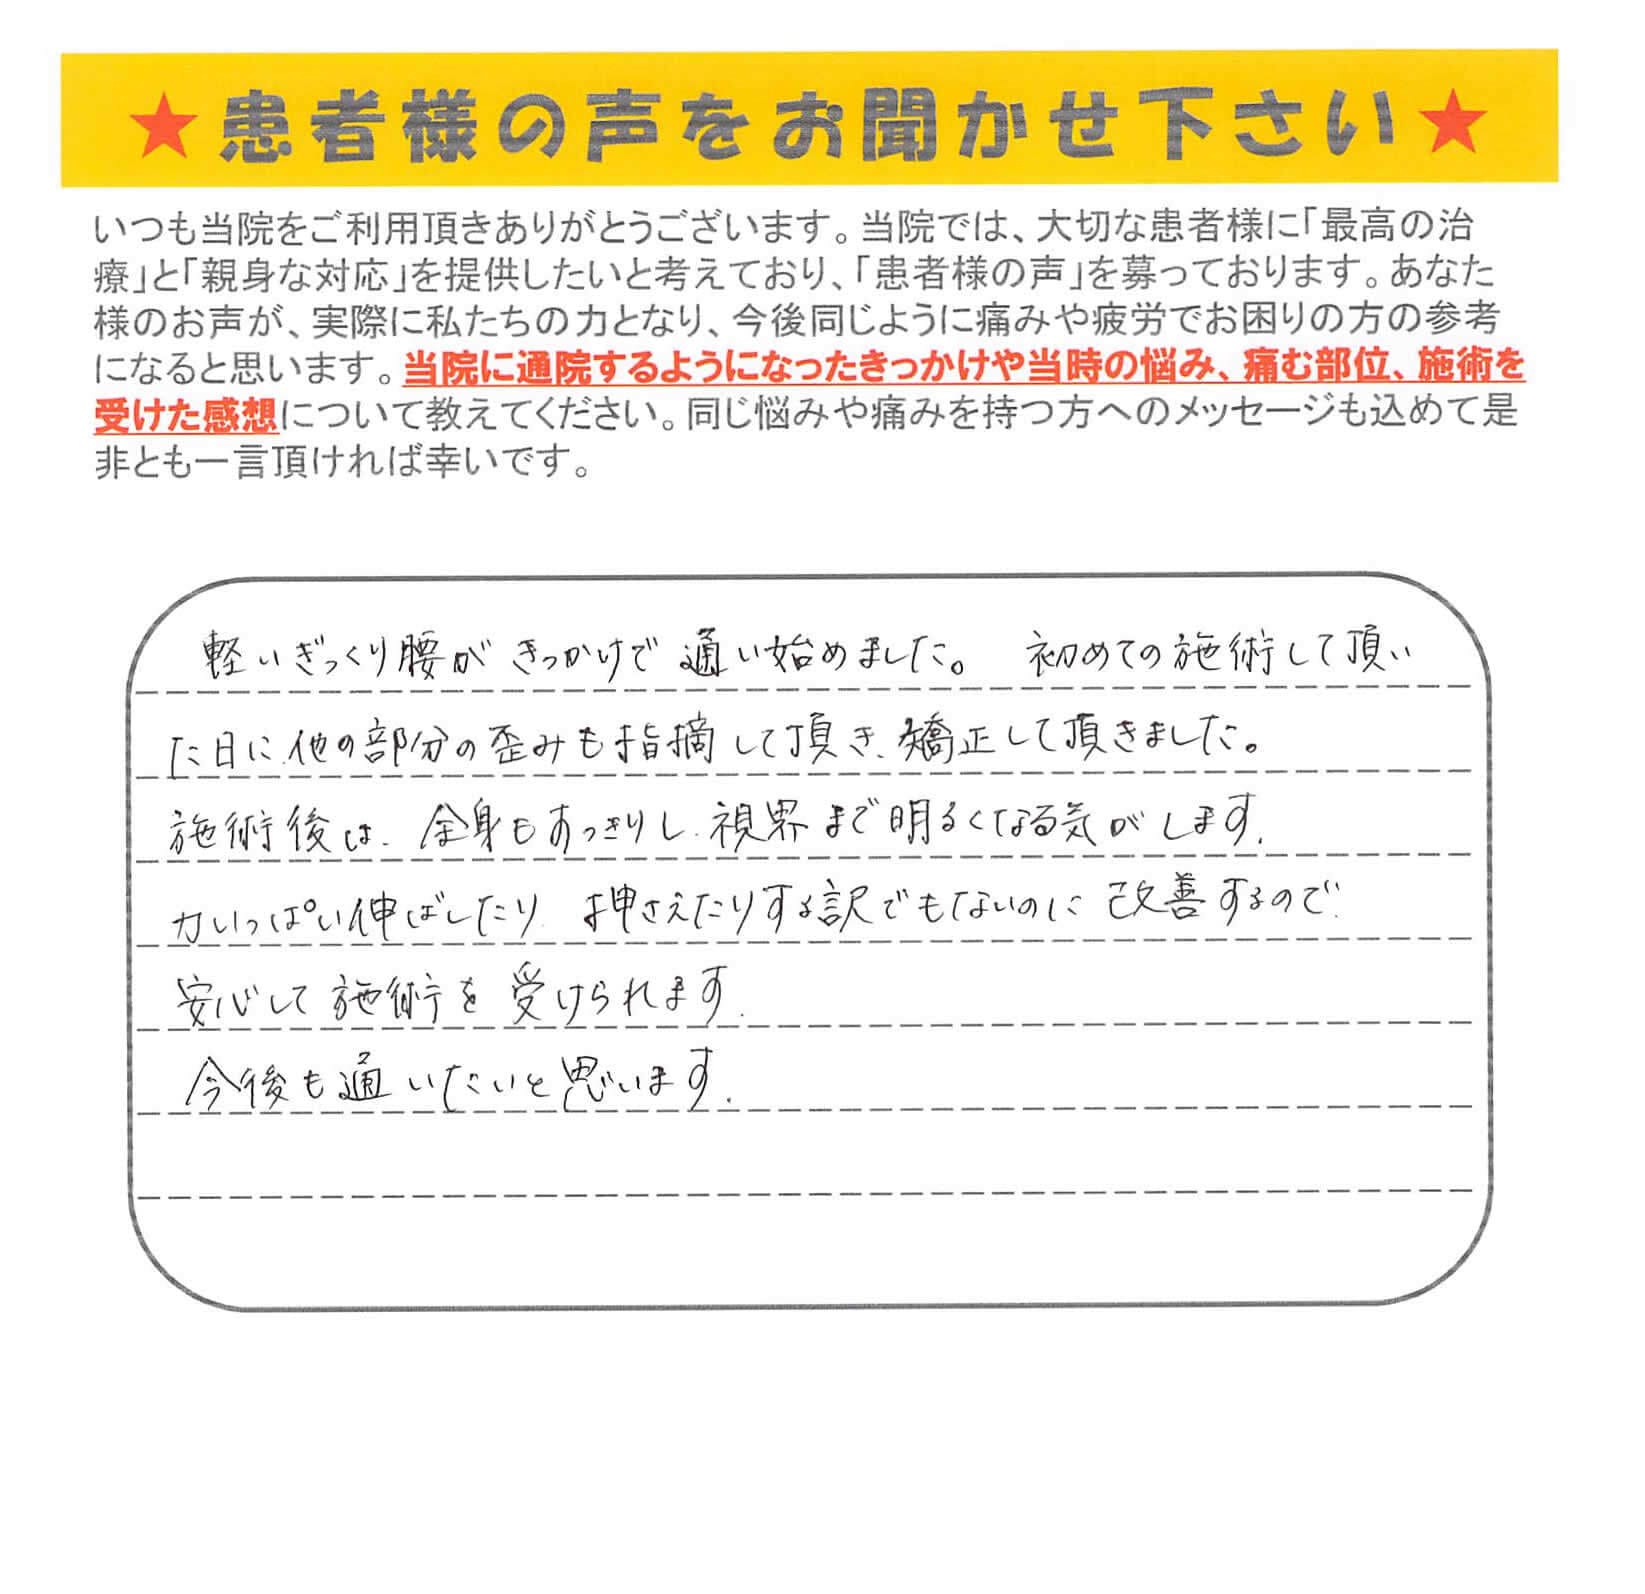 ★患者様の声をお聞かせ下さい★
いつも当院をご利用頂きありがとうございます。当院では、大切な患者様に「最高の治
療」と「親身な対応」を提供したいと考えており、「患者様の声」を募っております。あなた
様のお声が、実際に私たちの力となり、今後同じように痛みや疲労でお困りの方の参考
になると思います。当院に通院するようになったきっかけや当時の悩み、痛む部位、施術を
受けた感想について教えてください。同じ悩みや痛みを持つ方へのメッセージも込めて是
非とも一言頂ければ幸いです。
軽いぎっくり腰がきっかけで通い始めました。 初めての施術して頂い
た日に、他の部分の歪みも指摘して頂き、矯正して頂きました。
施術後は、全身もすっきりし、視界まで明るくなる気がします。
力いっぱい伸ばしたり、押さえたりする訳でもないのに改善するので、
安心して施術を受けられます。
今後も通いたいと思います。